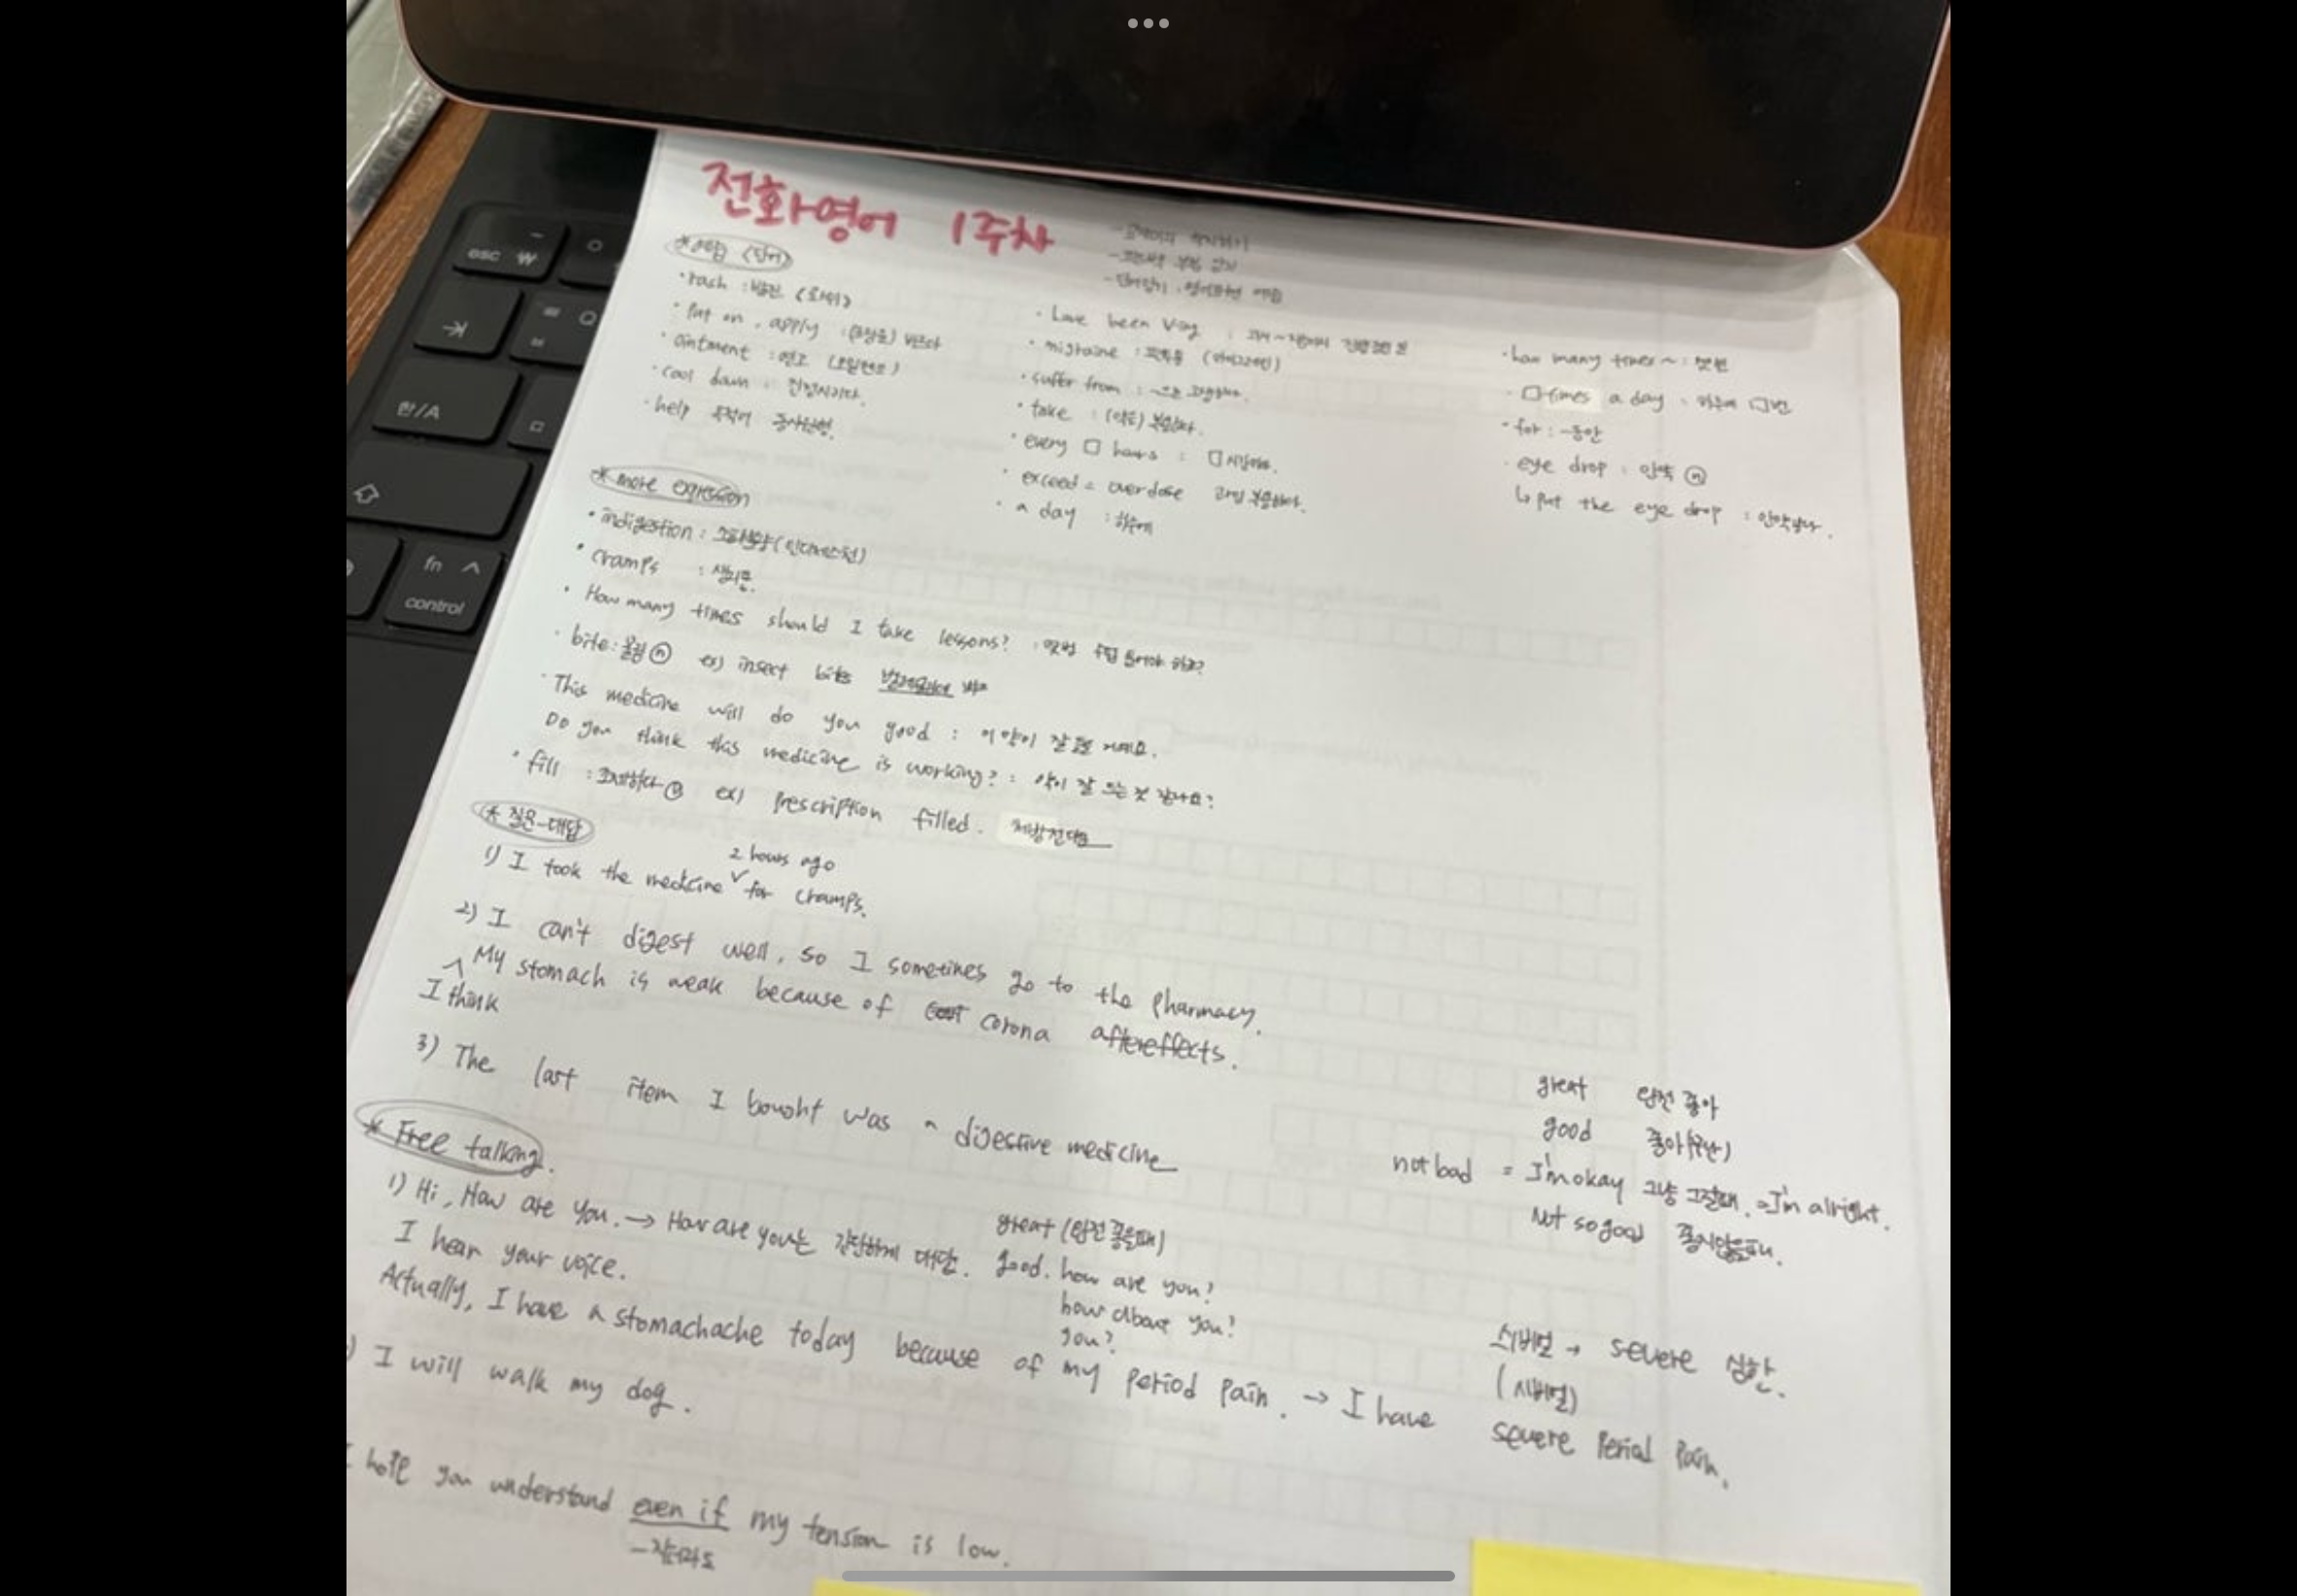 전화영어 1주차
* (단어)
· rash : 발진 (래쉬)
· Put on, apply : 바르다
· ointment : 연고
· cool down : 진정시키다.
· help 목적어 동사원형.
· have been Ving :
· migraine : 편두통
· suffer from : ~으로 고생하다.
· take : (약을) 복용하다.
· every □ hours : □시간마다.
· exceed = overdose 과잉 복용하다.
· a day : 하루에
· how many times ~ : 몇번
· □ times a day : 하루에 □번
· for : ~동안
· eye drop : 안약 ⓝ
↳ put the eye drop : 안약넣다.
* more expression
· indigestion : 소화불량 (인디제스천)
· cramps : 생리통.
· How many times should I take lessons? : 몇번 수업 들어야 하죠?
· bite : 물림 ⓝ ex) insect bites
· This medicine will do you good : 이 약이 잘 들 거예요.
Do you think this medicine is working? : 약이 잘 드는 것 같나요?
· fill : 조제하다 ⓥ ex) Prescription filled.
* 질문-대답
2 hours ago
1) I took the medicine ∨ for cramps.
2) I can't digest well, so I sometimes go to the pharmacy.
My stomach is weak because of corona aftereffects.
I think
3) The last item I bought was a digestive medicine
great 완전 좋아
good 좋아(무난)
not bad = I'm okay 그냥 그럴때. = I'm alright.
Not so good 좋지않을때.
* Free talking.
1) Hi, How are you. → How are you는 간단하게 대답.
great (완전 좋을때)
good. how are you?
how about you?
you?
I hear your voice.
Actually, I have a stomachache today because of my period pain. → I have severe Period Pain.
쉬버얼 → severe 심한.
(시비얼)
) I will walk my dog.
I hope you understand even if my tension is low.